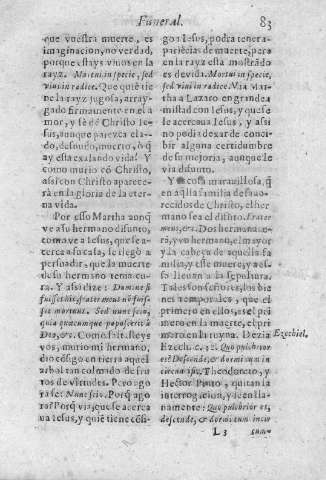 Funeral. 83
que vuestra muerte, es
imaginacion, no verdad,
porque estays viuos en la
rayz. Mortui in specie, sed
viui in radice. Que quiē tie
ne la rayz jugosa, array-
gado firmamente en el a
mor, y fè dē Christo Ie-
sus, aunque parezca ela-
do, desnudo, muerto, ò q̃
ay está exalando vida! Y
como murio cō Christo,
assi con Christo aparece-
rà en la gloria de la eter-
na vida.
Por esso Martha aunq̃
ve a su hermano difunto,
como ve a Iesus, que se a-
cerca a su casa, se llegò a
persuadir, que la muerte
de su hermano tenia cu-
ra. Y assi dize: Domine si
fuisses hic, frater meus nō fuis-
set mortuus. Sed nunc scio,
quia quæcumque poposceris à
Deo, &c. Como estais lexos
vos, murio mi hermano,
dio cōsigo en tierra aquel
arbol tan colmado de fru
tos de virtudes. Pero ago
ra sè: Nunc scio. Porq̃ ago
ra? Porq̃ vía, que se acerca
ua Iesus, y quiē tiene cōsi-
go a Iesus, podra tener a-
pariēcias de muerte, pero
en la rayz esta mostrādo
es de vida. Mortui in specie,
sed viui in radice. Via Mar-
tha a Lazaro en grande a
mistad con Iesus, y que se
le acercaua Iesus, y assi
no podia dexar de conce-
bir alguna certidumbre
de su mejoria, aunque le
via difunto.
Y es cosa marauillosa, q̃
en aq̃lla familia de fauo-
recidos de Christo, el her
mano sea el difũto. Frater
meus, &c. Dos hermana te-
nia, y vn hermano, el mayor
y la cabeça de aquella fa
milia, y este muere, y a este
lo lleuan a la sepultura.
Tales son señores, los bie
nes temporales, que el
primero en ellos, es el pri
mero en la muerte, el pri-
mero en la ruyna. Dezia
Ezech. c. 32. Quo pulchrior
es? Descende, & dormi cum in
circuncisis. Theodoreto, y
Hector Pinto, quitan la
interrogacion, y leen lla-
namente: Quo pulchrior es,
descende, & dormi cum incir
Ezechiel.
L 3 sum-